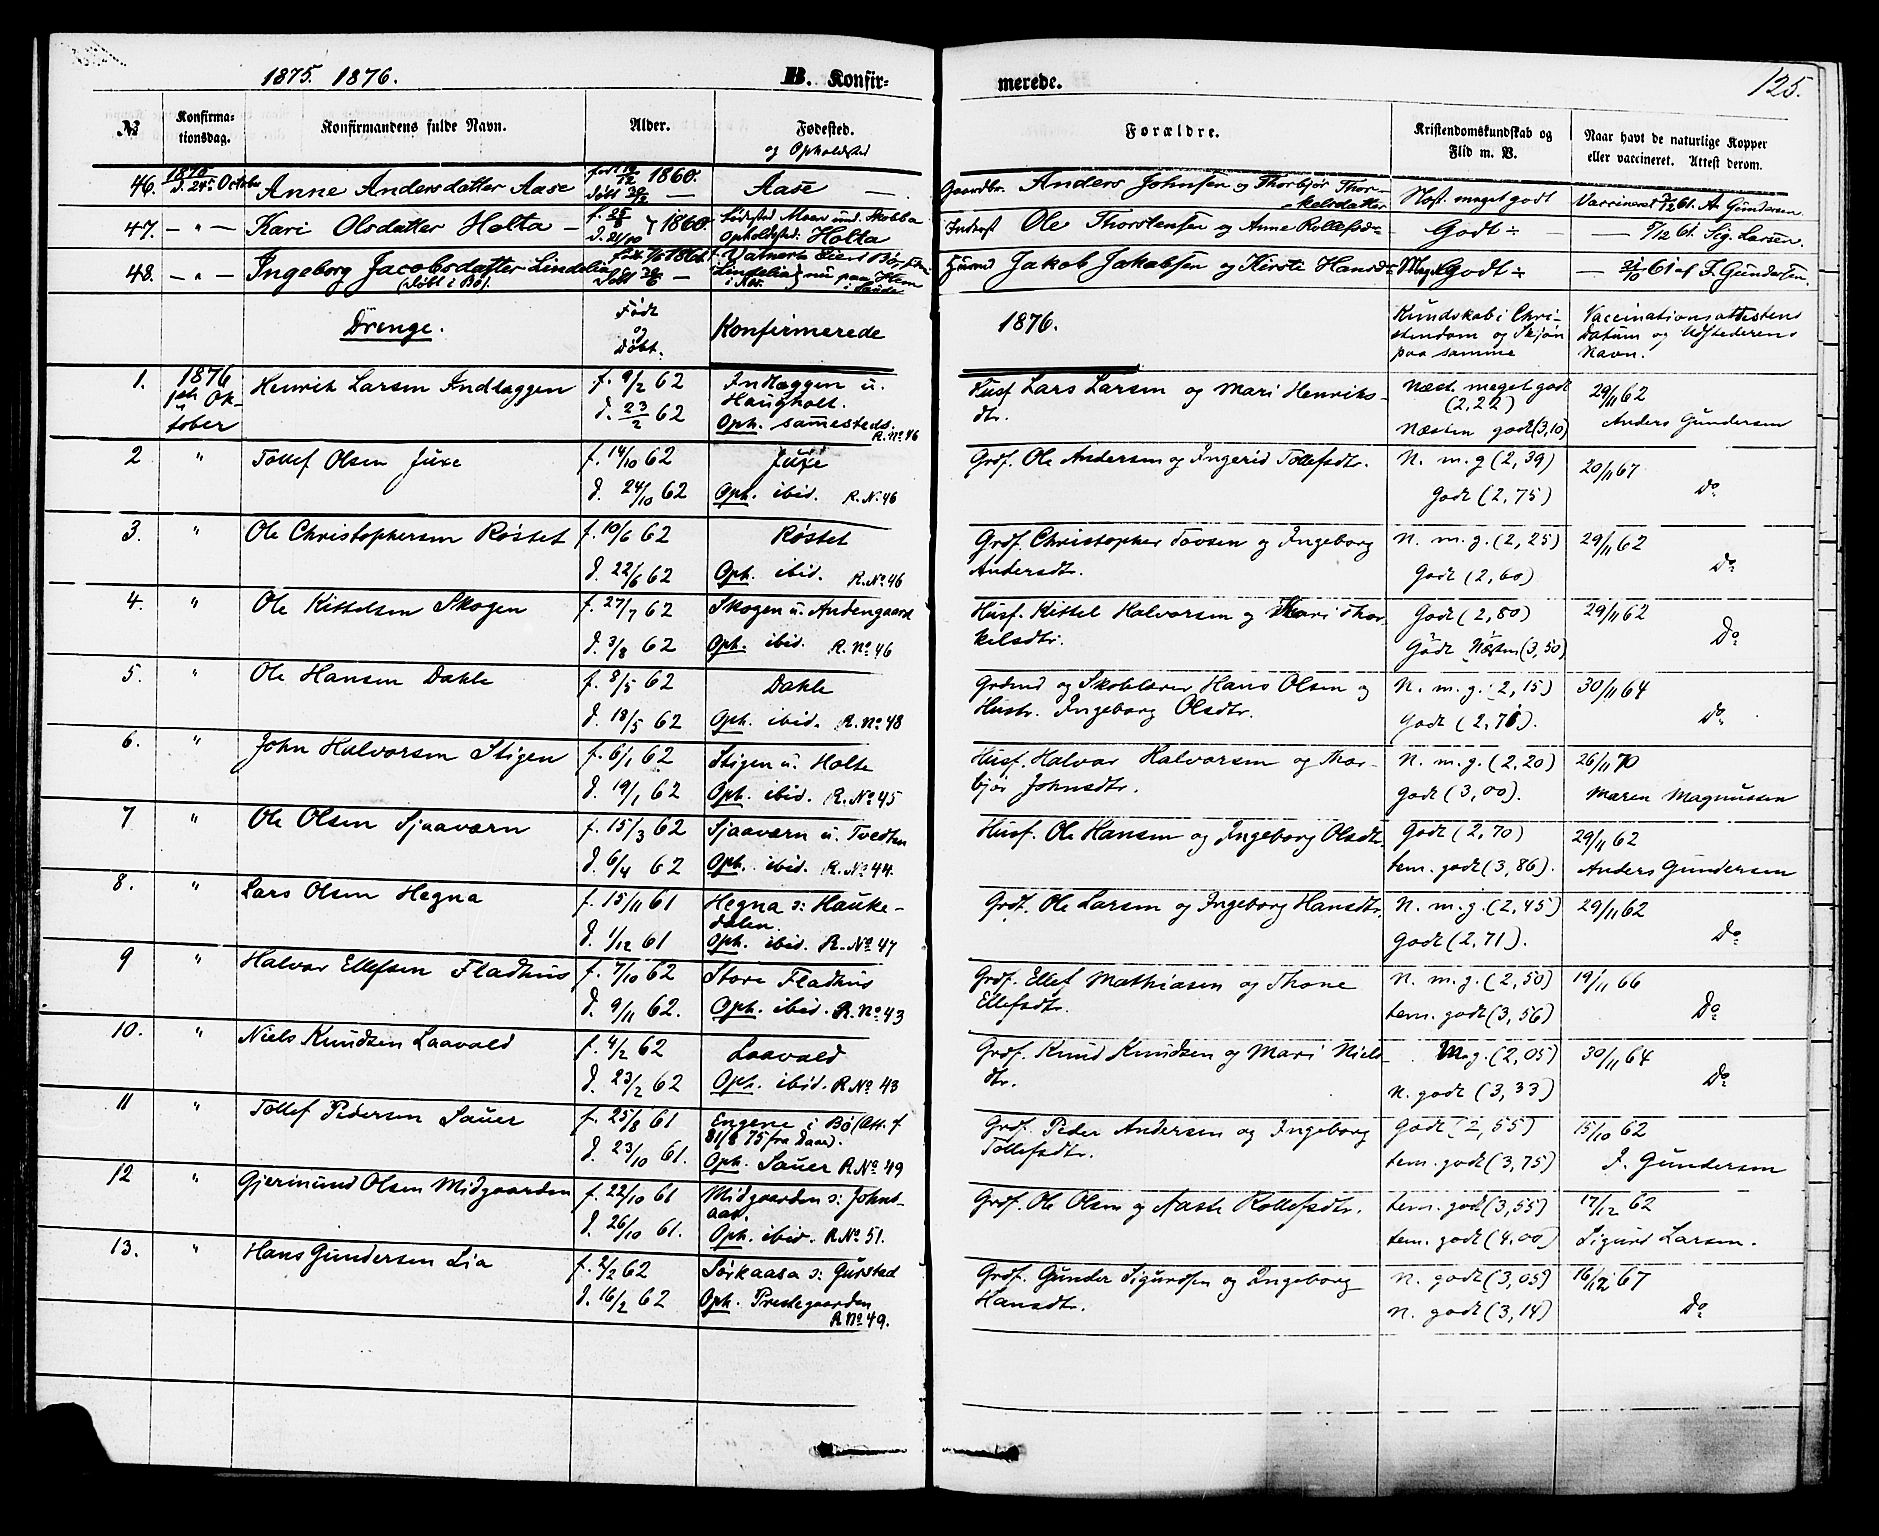 1875. 1876.
B. Konfir-
merede.
125.
№
Konfirma-
tionsdag.
Konfirmandens fulde Navn.
Alder.
Fødested.
og Opholdsted
Forældre.
Kristendomskundskab og
Flid m. V.
Naar havt de naturlige Kopper
eller vaccineret. Attest derom.
46. 1875 d. 24de October Anne Andersdatter Aase 1860. Aase — Anders Johnsen og Thorbjør Thor-
kelsdatter Næst. meget godt Vaccineret A. Gundersen
47. — " — Kari Olsdatter Holta — 1860. Fødested Moen
Opholdsted: Holta Inderst Ole Thorstensen og Anne Rollefsd= Godt ÷ — Sig. Larsen.
48. — " — Ingeborg Jacobsdatter Lindelia
(døbt i Bø). Jakob Jakobsen og Kirsti Hansd= Godt ÷ — 21/10 61 af J. Gundersen.
Drenge.
Født
og
Døbt.
Konfirmerede
1876.
Kundskab i Chri-
stendom og Skjøn
paa samme
Vaccinationsattestens
Datum og Udstederens
Navn.
1. 1876
1ste Ok-
tober Henrik Larsen Indlæggen f. 9/2 62
d. 23/2 62 Indlæggen u.
Haugholt.
Oph. samesteds.
R. No 46 Husf. Lars Larsen og Mari Henriks-
dtr. Næst. meget godt
(2,22)
Næsten godt (3,10) 29/11 62
Anders Gundersen
2 " Tollef Olsen Juxe f. 14/10 62
d. 24/10 62 Juxe
Oph. ibid. R. No. 46 Grdf. Ole Andersen og Ingerid Tollefsdtr. N. m. g (2,39)
Godt (2,75) 20/11 67
Do
3. " Ole Christophersen Røstet f. 10/6 62
d. 22/6 62 Røstet
Oph. ibid. R. No 46 Grdf. Christopher Tovsen og Ingeborg
Andersdtr. N. m. g. (2,25)
Godt (2,60) 29/11 62
Do
4. " Ole Kittelsen Skogen f. 27/7 62
d. 3/8 62 Skogen u. Andengaard
Oph. ibid. R. No 46 Husf. Kittel Halvorsen og Kari Thor-
kilsdtr. Godt (2,80)
Godt Næsten (3,50) 29/11 62
Do
5. " Ole Hansen Dahle f. 8/5 62
d. 18/5 62 Dahle
Oph. ibid. R. No 48 Grdmd og Skolelærer Hans Olsen og
Hustr. Ingeborg Olsdtr. N. m. g. (2,15)
Godt (2,71). 30/11 64
Do
6. " John Halvorsen Stigen f. 6/1 62
d. 19/1 62 Stigen u. Holte
Oph. ibid. R. No 45 Husf. Halvor Halvorsen og Thor-
bjør Johnsdtr. N. m. g. (2,20)
godt (3,00). 26/11 70
Maren Magnussen
7 " Ole Olsen Sjaavarn f. 15/3 62
d. 6/4 62 Sjaavarn u. Tvedten
Oph. ibid. R. No 44. Husf. Ole Hansen og Ingeborg Olsdtr. Godt (2,70)
tem. godt (3,86). 29/11 62
Anders Gundersen
8. " Lars Olsen Hegna f. 15/11 61
d. 1/12 61 Hegna s: Hauke-
dalen.
Oph. ibid. R. No 47 Grdf. Ole Larsen og Ingeborg Hansdtr. N. m. g. (2,45)
Godt (2,71). 29/11 62
Do
9 " Halvor Ellefsen Fladhus f. 7/10 62
d. 9/11 62. Store Fladhus
Oph. ibid. R. No 43 Grdf. Ellef Mathiasen og Thone
Ellefsdtr. N. m. g. (2,50)
tem. godt (3,56) 19/11 66
Do
10. " Niels Knudsen Laavald f. 4/2 62
d. 23/2 62 Laavald
Oph. ibid. R No 43 Grdf. Knud Knudsen og Mari Niels-
dtr. M. g. (2,05)
n. godt (3,33) 30/11 64
Do
11 " Tollef Pedersen Sauer f. 25/8 61
d. 23/10 61. Engene i Bø (Att. f
31/8 75 fra Daard.
Oph. Sauer R No 49 Grdf. Peder Andersen og Ingeborg
Tollefsdtr. Godt (2,55)
tem. godt (3,75) 15/10 62
J. Gundersen
12 " Gjermund Olsen Midgaarden f. 22/10 61
d. 26/10 61. Midgaarden s: Johns-
aas.
Oph. ibid. R No 51. Grdf. Ole Olsen og Aaste Rollefsdtr. tem. godt (3,55)
tem. godt (4,00) 17/12 62
Sigurd Larsen.
13. " Hans Gundersen Lia f. 2/2 62
d. 16/2 62 Sørkaasa s: Gursted
Oph. Prestegaarden
R No 49. Grdf. Gunder Sigurdsen og Ingeborg
Hansdtr. N. godt (3,05)
n. godt (3,14) 16/12 67
Do